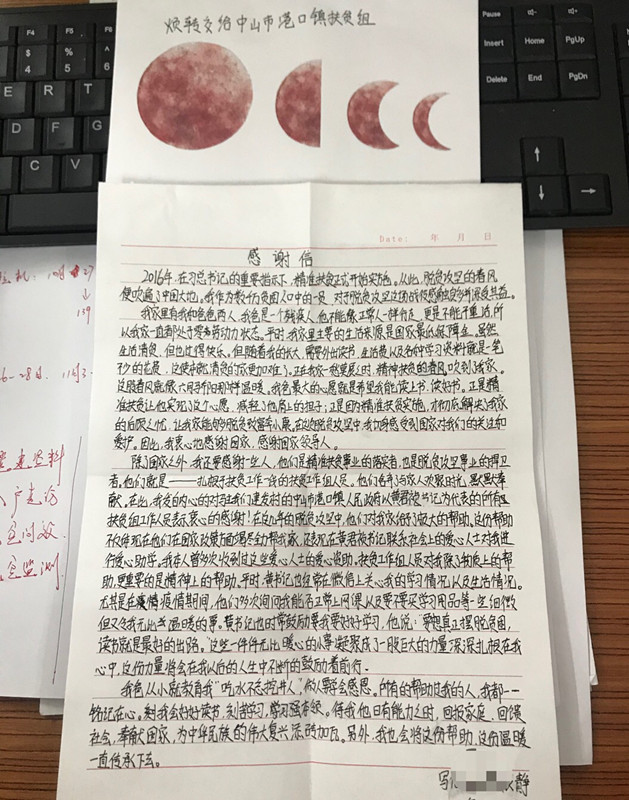 烦转交给中山市港口镇扶贫组
Pause
Insert Home PgUp
Delete End PgDn
$ 4 % 5 ^ 6
E R T
D F G
C V
Date: 年 月 日
感谢信
2016年,在习总书记的重要指示下,精准扶贫正式开始实施。从此,脱贫攻坚的春风
便吹遍了中国大地。我作为数千万贫困人口中的一员,对于脱贫攻坚这场战役感触良多并深受其益。
我家里有我和爸爸两人,我爸是一个残疾人,他不能像正常人一样行走,更是不能干重活,所
以我家一直都处于零劳动力状态。平时,我家里主要的生活来源是国家最低保障金,虽然
生活清贫,但也过得快乐。但随着我的长大,需要外出读书,生活费以及各种学习资料都是一笔
不少的花费,这使本就清贫的家更加艰难了。正在我家一筹莫展之时,精神扶贫的春风吹到了我家。
这股春风就像六月的阳光那样温暖,我爸最大的心愿就是希望我能读上书,读好书。正是精
准扶贫让他实现了这个心愿,减轻了他肩上的担子;正是因为精准扶贫实施,才彻底解决了我家
的后顾之忧,让我家能够脱贫致富奔小康。在这次脱贫攻坚中,我切身感受到国家对我们的关注和
爱护。因此,我衷心地感谢国家,感谢国家领导人。
除了国家之外,我还要感谢一些人,他们是精准扶贫事业的落实者,也是脱贫攻坚事业的捍卫
者,他们就是——扎根于扶贫工作一线的扶贫工作组人员。他们牺牲了与家人欢聚时光,默默奉
献。在此,我发自内心的对驻我们建友村的中山市港口镇人民政府以黄君披书记为代表的所有
扶贫组工作人员表示衷心的感谢!在这几年的脱贫攻坚中,他们对我家给了极大的帮助。这份帮助
不仅体现在他们在国家政策方面竭尽全力帮我家,还表现在黄君披书记联系社会上的爱心人士对我进
行爱心助学。我本人曾多次收到过这些爱心人士的爱心资助。扶贫工作组人员对我除了物质上的帮
助,更重要的是精神上的帮助。平时,黄书记也经常在微信上关心我的学习情况以及生活情况。
尤其是在疫情期间,他们多次询问我能否正常上网课以及要不要买学习用品等一些细微
但又令我无比温暖的事。黄书记也时常鼓励要我要好好学习,他说:“要想真正摆脱贫困,
读书就是最好的出路。”这些一件件无比暖心的小事凝聚成了一股巨大的力量深深扎根在我
心中,这份力量将会在我以后的人生中不断的鼓励着前行。
我爸从小就教育我“吃水不忘挖井人”,做人要学会感恩。所有的帮助过我的人,我都一一
铭记在心。我会好好读书,刻苦学习,学习强本领。待我他日有能力之时,回报家庭,回馈
社会,奉献国家,为中华民族的伟大复兴添砖加瓦。另外,我也会将这份帮助,这份温暖
一直传承下去。
写 静